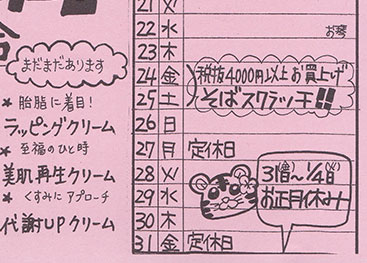 まだまだあります
★ 胎脂に着目!
ラッピングクリーム
★ 至福のひと時
美肌再生クリーム
★ くすみに アプローチ
代謝UPクリーム
21 火
22 水 お琴
23 木
24 金 税抜4000円以上お買上げ
25 土 そばスクラッチ!!
26 日
27 月 定休日
28 火
29 水
30 木
31 金 定休日
お正月休み